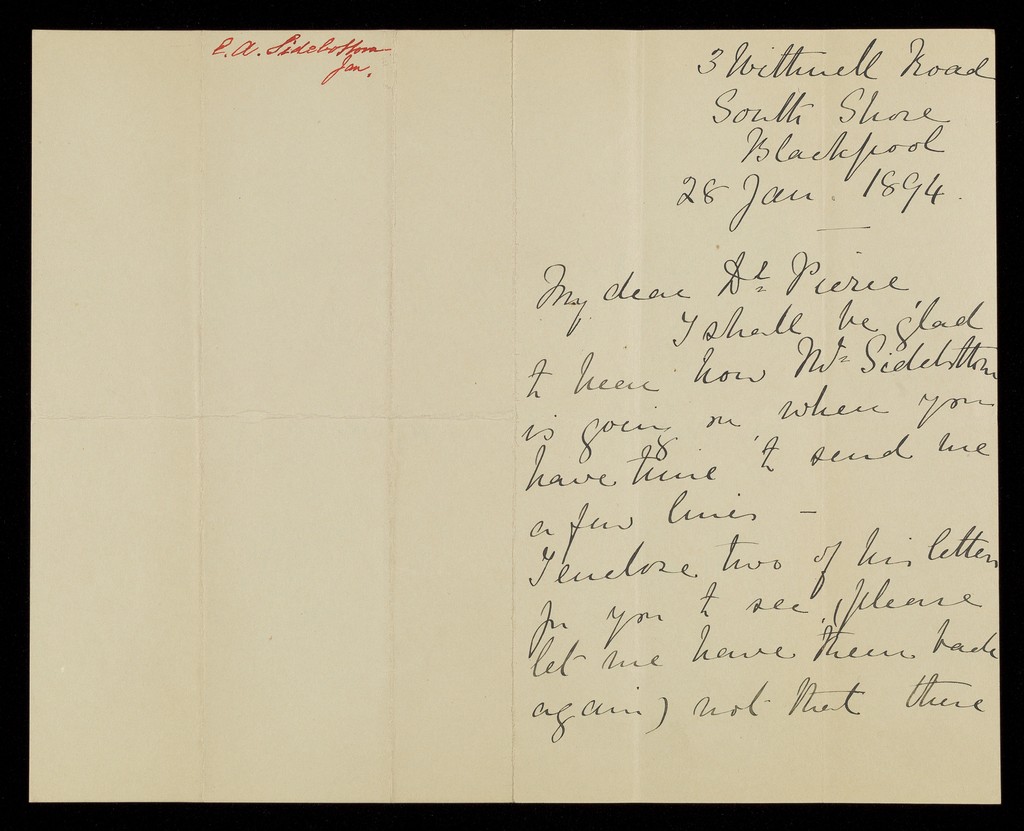 E. A. Sidebottom
Jan.
3 Withnell Road
South Shore
Blackpool
28 Jan. 1894.
My dear Dr. Pierce
I shall be glad
to hear how Mr. Sidebottom
is going on when you
have time to send me
a few lines –
I enclose two of his letters
for you to see (please
let me have them back
again) not that there